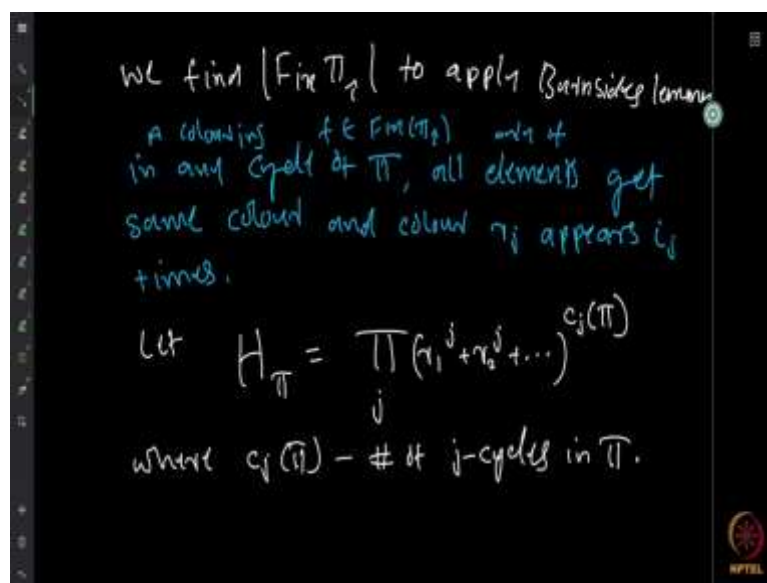 We find |Fix π_î| to apply Burnsides lemma
A colouring f ∈ Fix(π_î) only if
in any cycle of π, all elements get
same colour and colour r_j appears i_j
times.
Let H_π = ∏_j (r_1^j + r_2^j + ...)^{c_j(π)}
where c_j(π) - # of j-cycles in π.
NPTEL